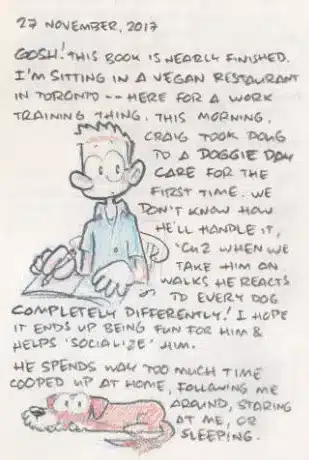 27 NOVEMBER, 2017
GOSH! THIS BOOK IS NEARLY FINISHED.
I'M SITTING IN A VEGAN RESTAURANT
IN TORONTO -- HERE FOR A WORK
TRAINING THING. THIS MORNING,
CRAIG TOOK DOUG
TO A DOGGIE DAY
CARE FOR THE
FIRST TIME. WE
DON'T KNOW HOW
HE'LL HANDLE IT,
'CUZ WHEN WE
TAKE HIM ON
WALKS HE REACTS
TO EVERY DOG
COMPLETELY DIFFERENTLY! I HOPE
IT ENDS UP BEING FUN FOR HIM &
HELPS 'SOCIALIZE' HIM.
HE SPENDS WAY TOO MUCH TIME
COOPED UP AT HOME, FOLLOWING ME
AROUND, STARING
AT ME, OR
SLEEPING.